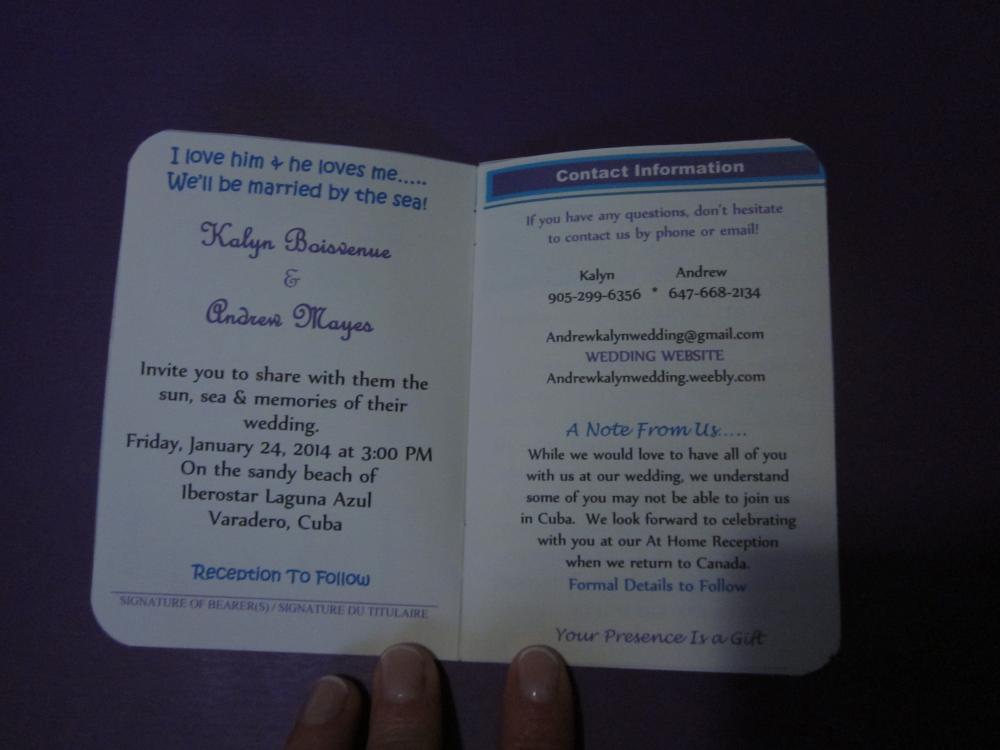 I love him & he loves me.....
We'll be married by the sea!
Kalyn Boisvenue
&
Andrew Mayes
Invite you to share with them the
sun, sea & memories of their
wedding.
Friday, January 24, 2014 at 3:00 PM
On the sandy beach of
Iberostar Laguna Azul
Varadero, Cuba
Reception To Follow
SIGNATURE OF BEARER(S) / SIGNATURE DU TITULAIRE
Contact Information
If you have any questions, don't hesitate
to contact us by phone or email!
Kalyn Andrew
905-299-6356 * 647-668-2134
Andrewkalynwedding@gmail.com
WEDDING WEBSITE
Andrewkalynwedding.weebly.com
A Note From Us.....
While we would love to have all of you
with us at our wedding, we understand
some of you may not be able to join us
in Cuba. We look forward to celebrating
with you at our At Home Reception
when we return to Canada.
Formal Details to Follow
Your Presence Is a Gift